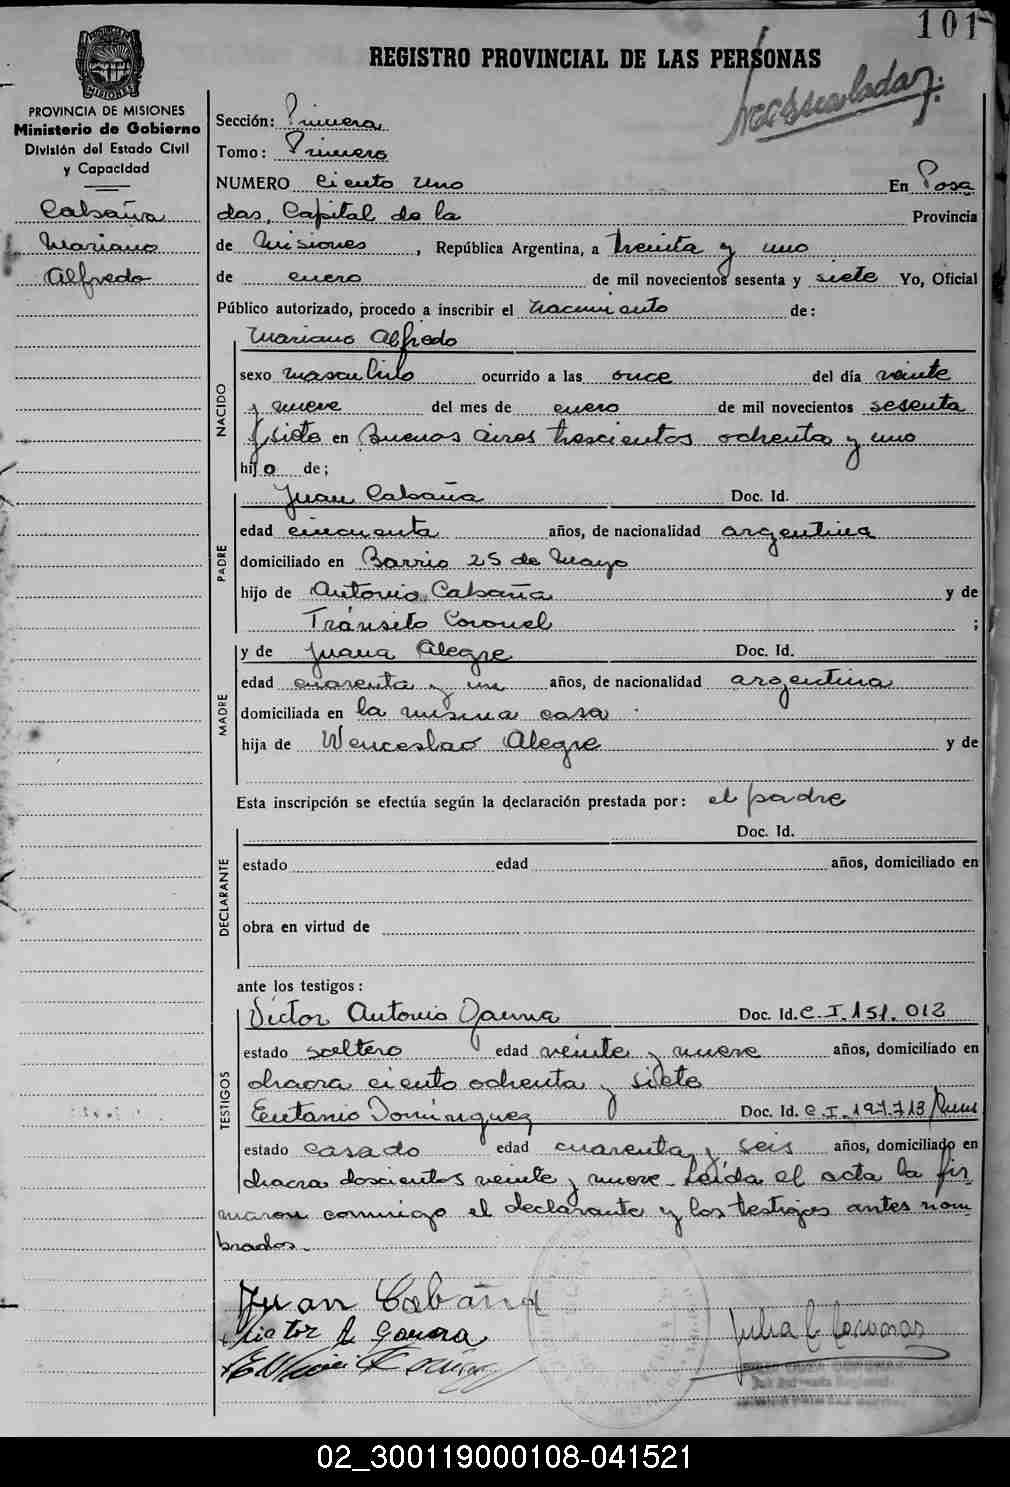 101
REGISTRO PROVINCIAL DE LAS PERSONAS
PROVINCIA DE MISIONES
Ministerio de Gobierno
División del Estado Civil
y Capacidad
Cabaña
Mariano
Alfredo
Sección: Primera
Tomo: Primero
NUMERO Ciento Uno En Posa
das, Capital de la Provincia
de Misiones, República Argentina, a treinta y uno
de enero de mil novecientos sesenta y siete Yo, Oficial
Público autorizado, procedo a inscribir el nacimiento de:
NACIDO
Mariano Alfredo
sexo masculino ocurrido a las once del día veinte
y nueve del mes de enero de mil novecientos sesenta
y siete en Buenos Aires trescientos ochenta y uno
hijo de;
PADRE
Juan Cabaña Doc. Id.
edad cincuenta años, de nacionalidad argentina
domiciliado en Barrio 25 de Mayo
hijo de Antonio Cabaña y de
Tránsito Coronel ;
MADRE
y de Juana Alegre Doc. Id.
edad cuarenta y un años, de nacionalidad argentina
domiciliada en la misma casa
hija de Wenceslao Alegre y de
Esta inscripción se efectúa según la declaración prestada por: el padre
DECLARANTE
Doc. Id.
estado edad años, domiciliado en
obra en virtud de
ante los testigos:
TESTIGOS
Víctor Antonio Gauna Doc. Id. C.I. 151.012
estado soltero edad veinte y nueve años, domiciliado en
chacra ciento ochenta y siete
Eutanio Domínguez Doc. Id. C.I. 197.713
estado casado edad cuarenta y seis años, domiciliado en
chacra doscientos veinte y nueve - Leída el acta la fir
maron conmigo el declarante y los testigos antes nom
brados.
Juan Cabaña
Victor A Gauna
Julia C
02_300119000108-041521